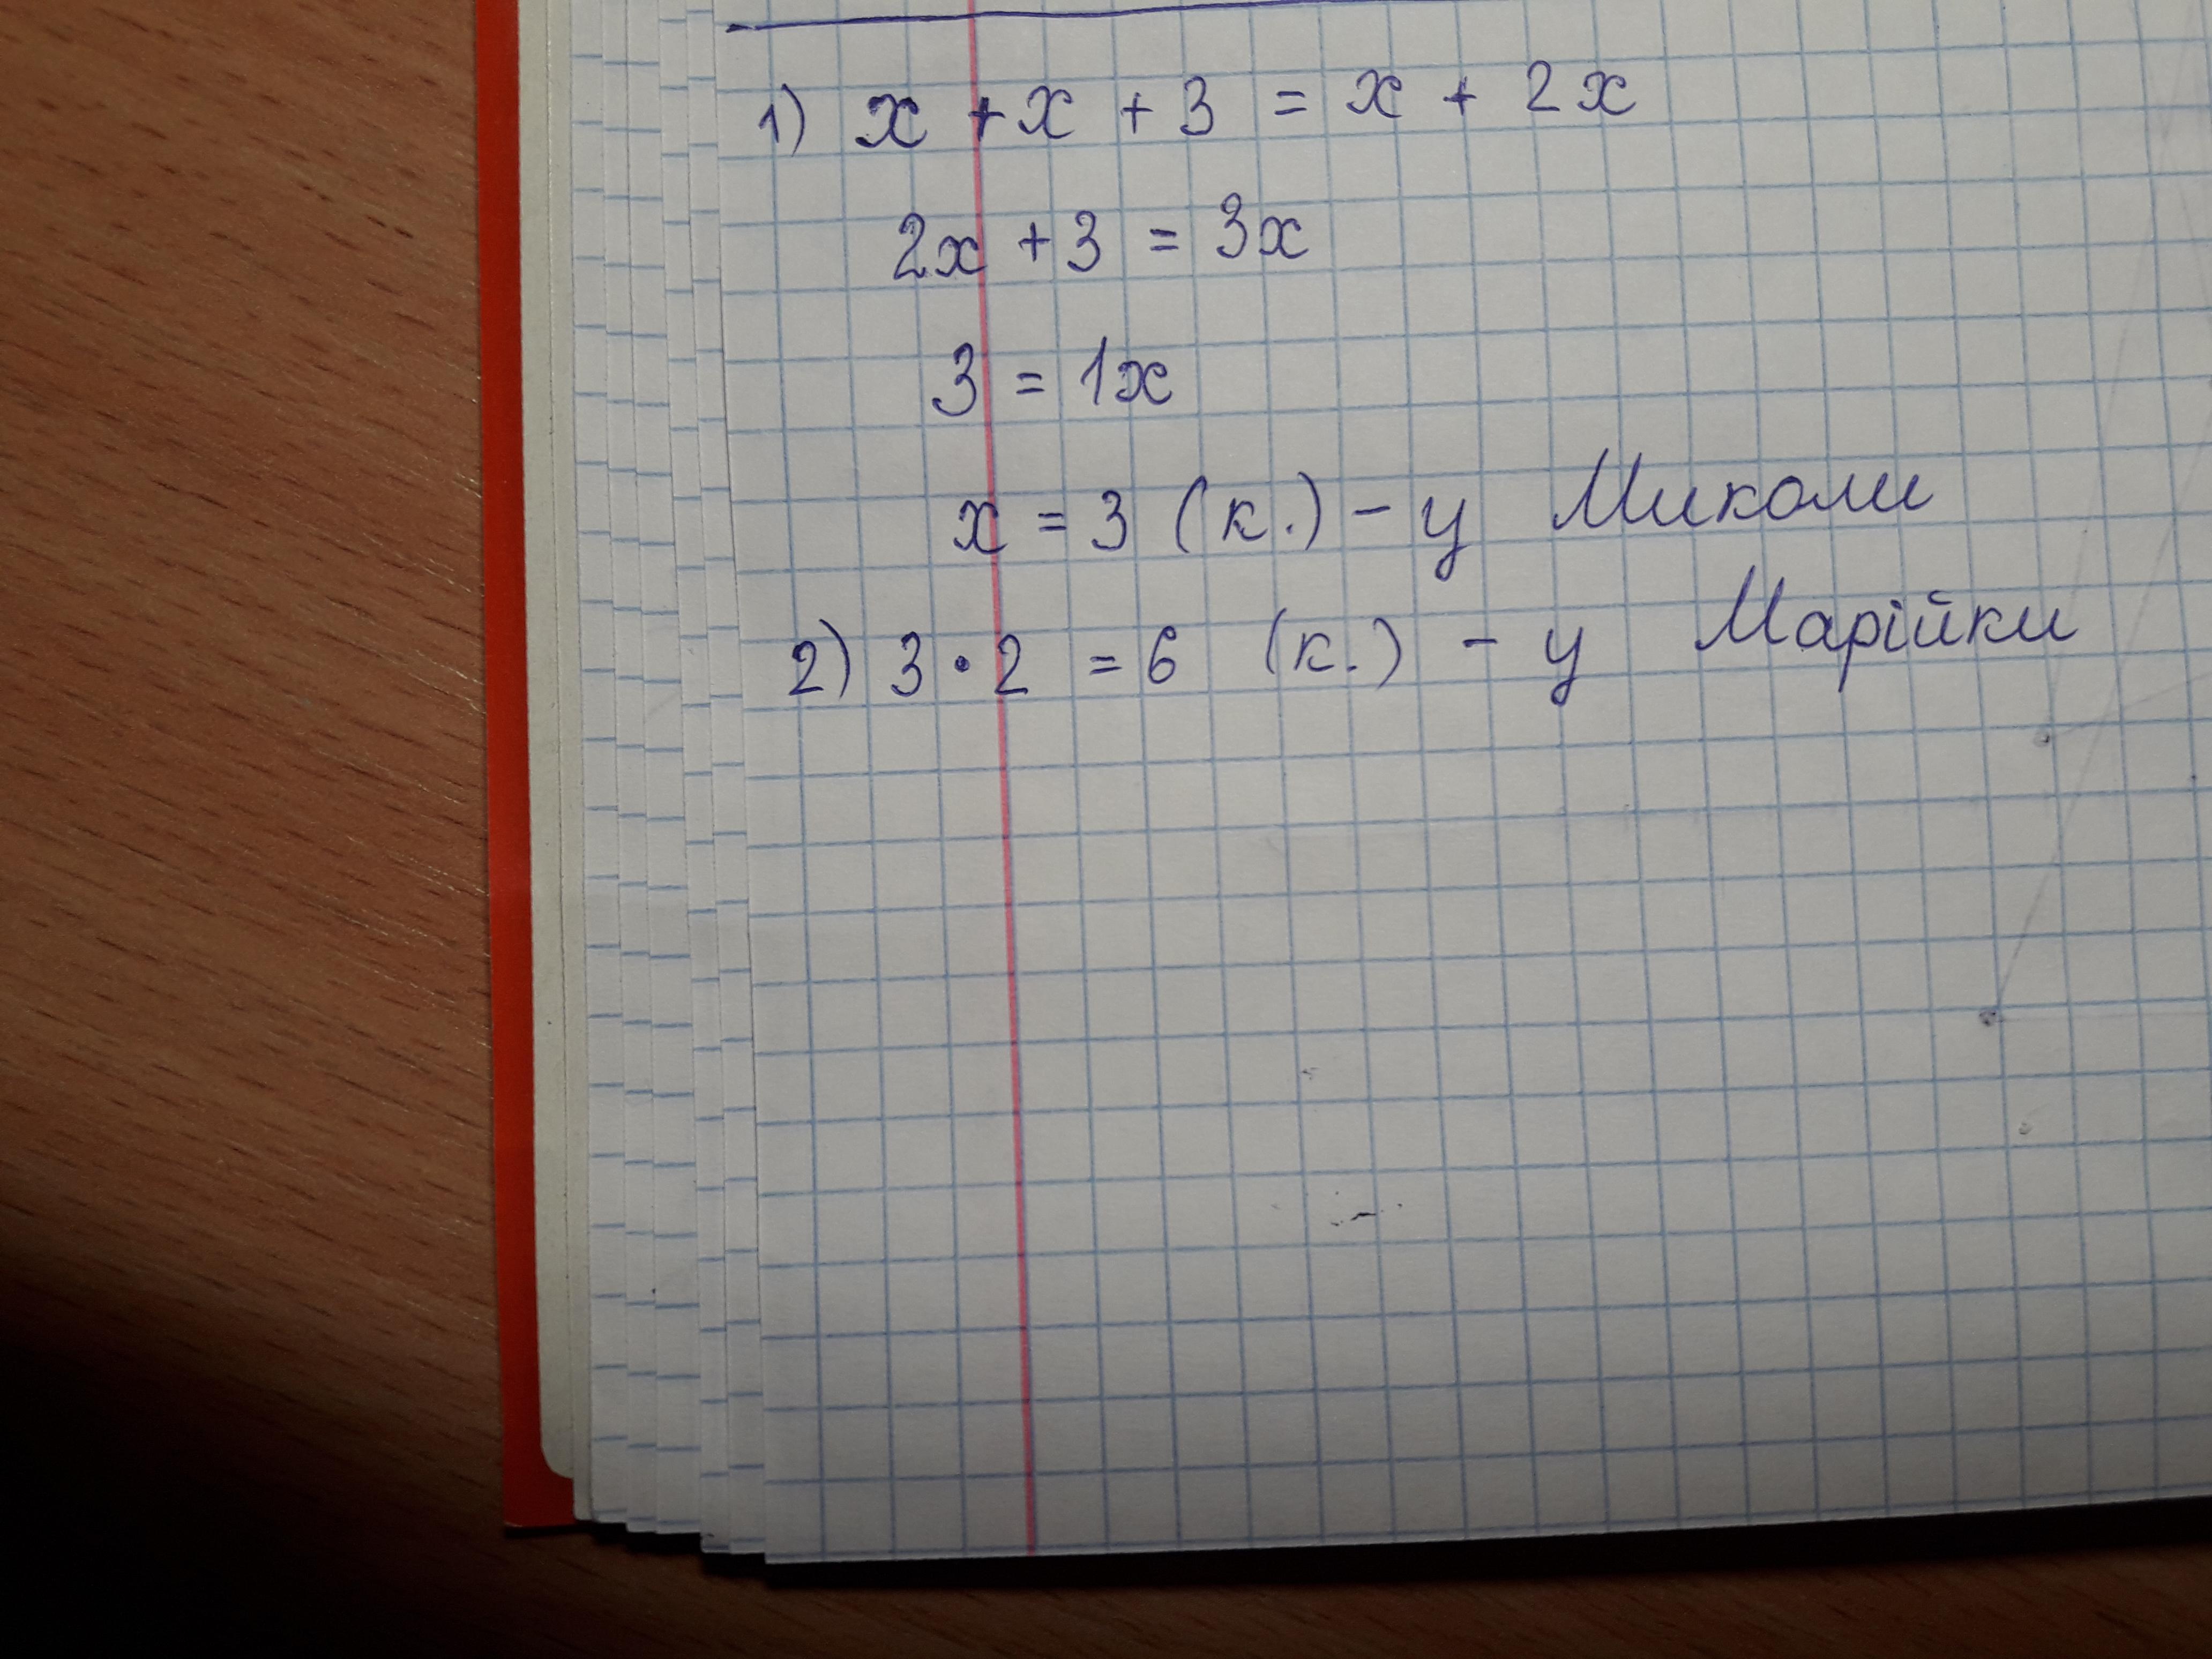 1) x + x + 3 = x + 2x
2x + 3 = 3x
3 = 1x
x = 3 (к.) - у Миколи
2) 3 • 2 = 6 (к.) - у Марійки